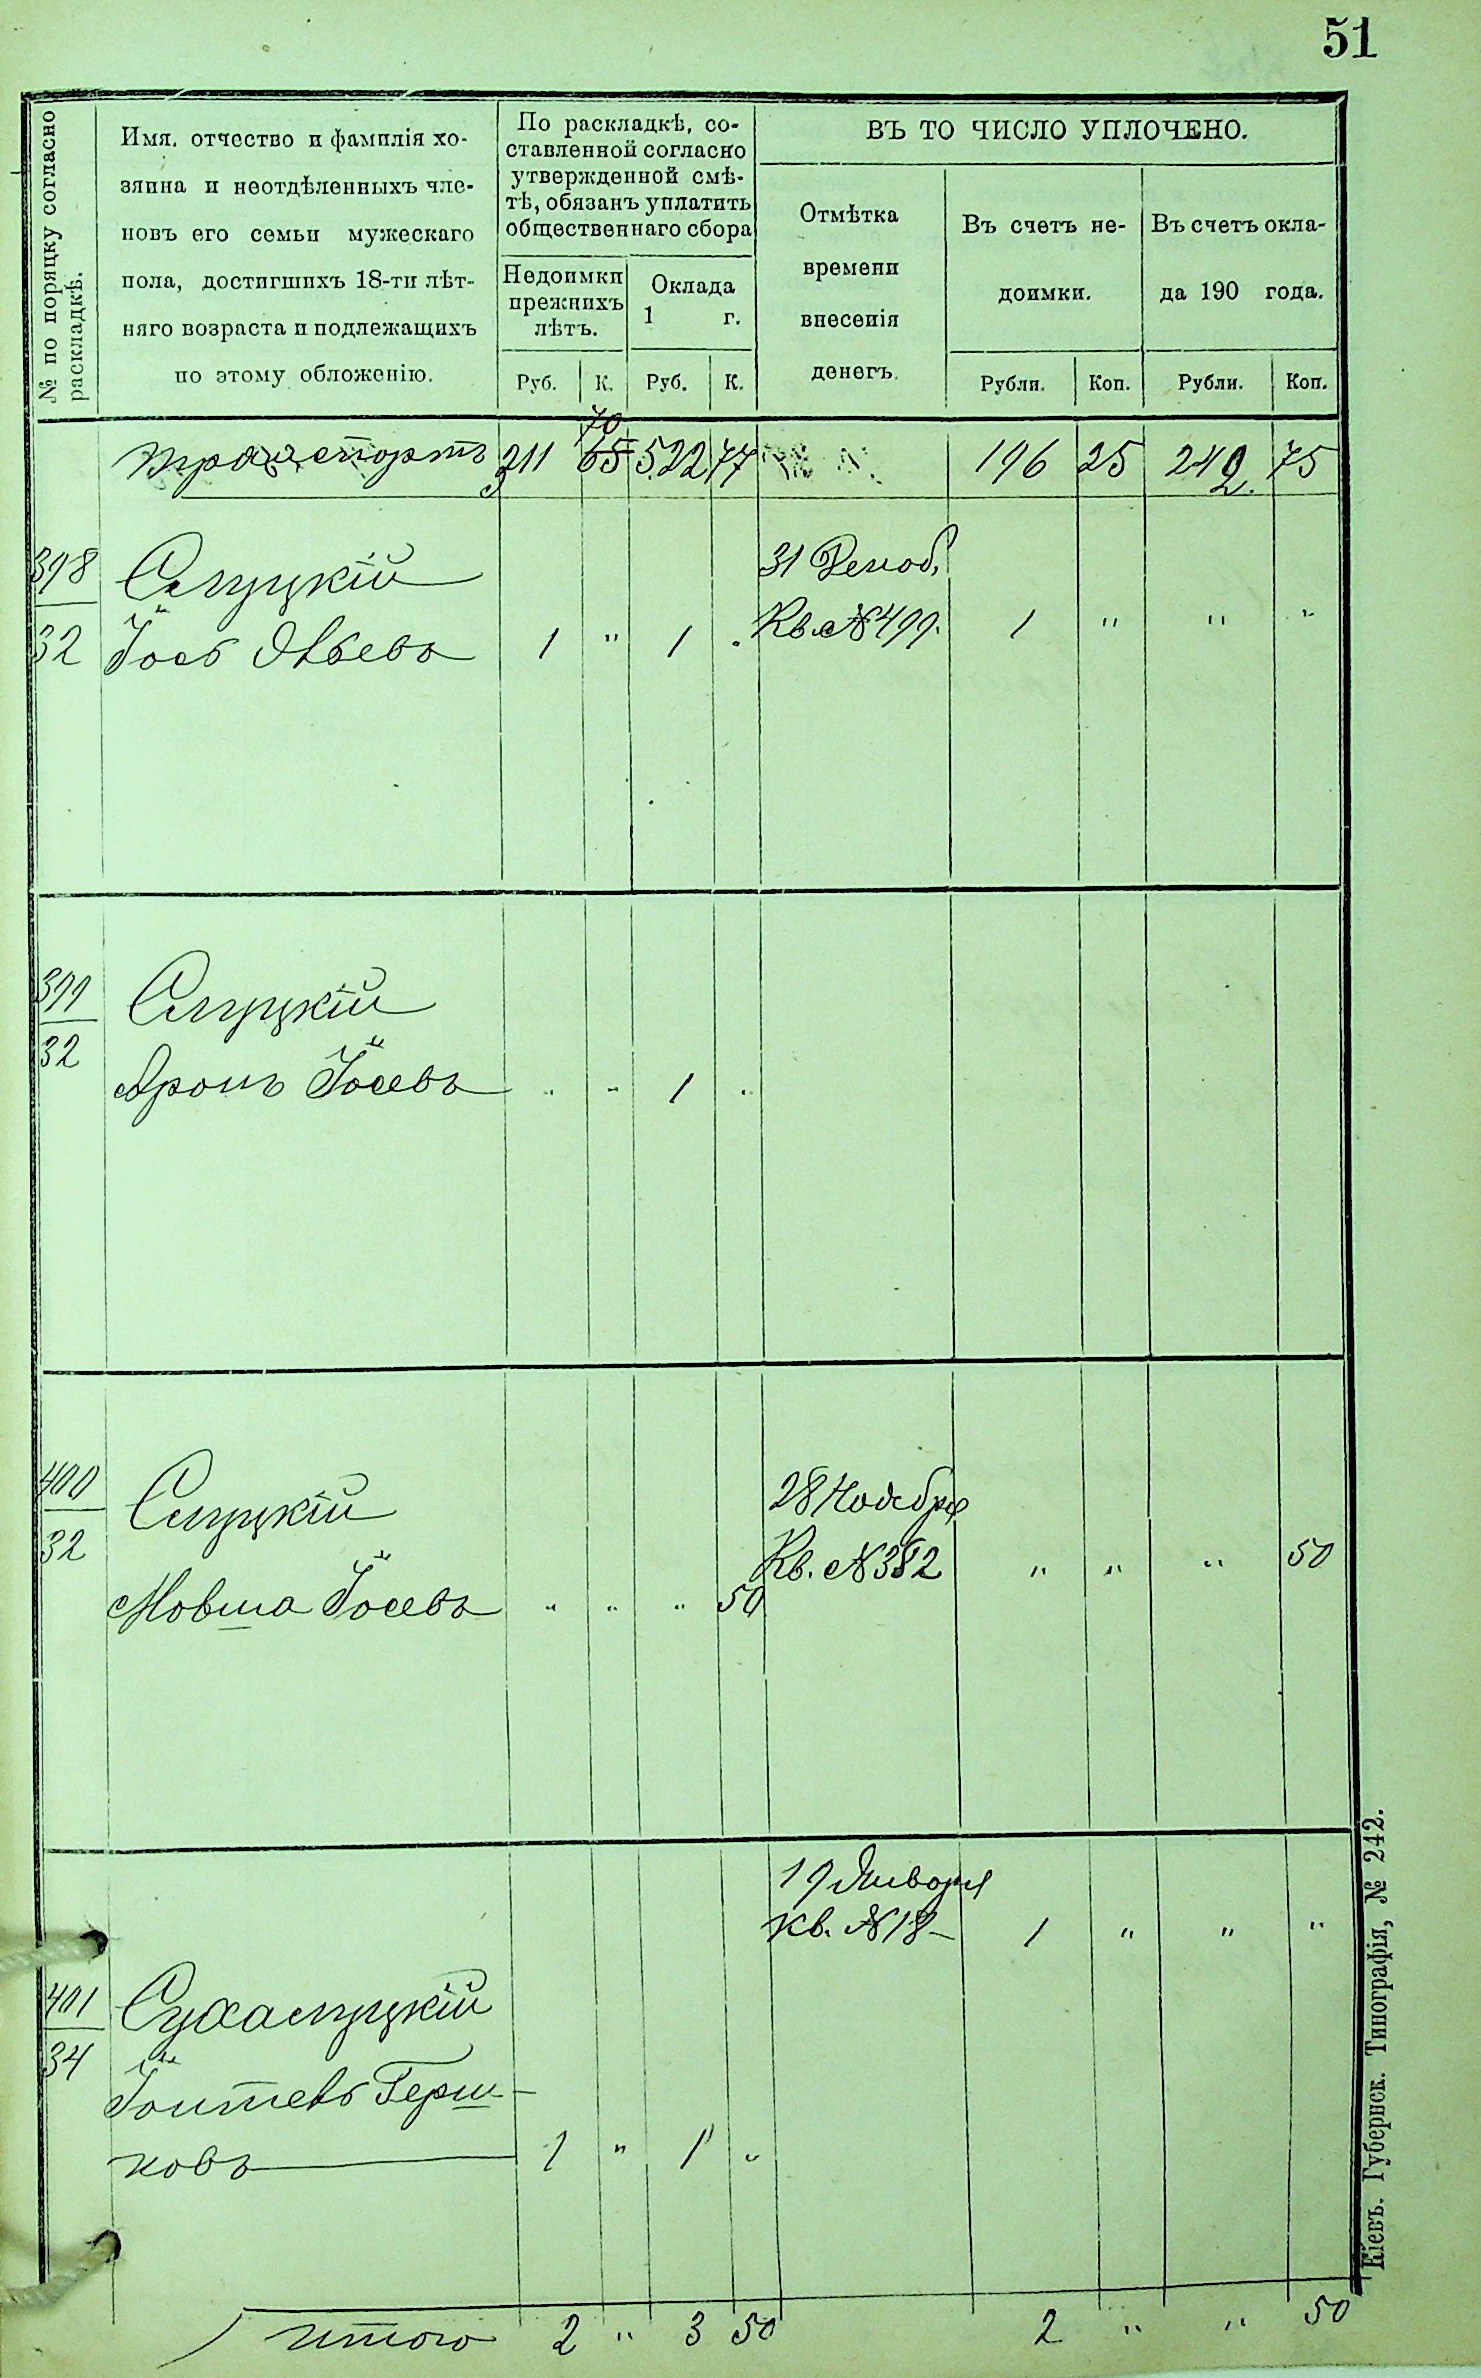 51
№ по порядку согласно
раскладкѣ.
Имя, отчество и фамилія хо-
зяина и неотдѣленныхъ чле-
новъ его семьи мужескаго
пола, достигшихъ 18-ти лѣт-
няго возраста и подлежащихъ
по этому обложенію.
По раскладкѣ, со-
ставленной согласно
утвержденной смѣ-
тѣ, обязанъ уплатить
общественнаго сбора
Недоимки
прежнихъ
лѣтъ.
Оклада
1 г.
Руб. К. Руб. К.
ВЪ ТО ЧИСЛО УПЛОЧЕНО.
Отмѣтка
времени
внесенія
денегъ.
Въ счетъ не-
доимки.
Въ счетъ окла-
да 190 года.
Рубли. Коп. Рубли. Коп.
70
транспортъ 211 65 522 77 196 25 242 75
398
32
Слуцкій
Іосъ Лѣбевъ 1 " 1 "
31 Декаб.
Кв. № 499. 1 " " "
399
32
Слуцкій
Аронъ Іосевъ " " 1 "
400
32
Слуцкій
Мовша Іосевъ " " " 50
28 Ноября
Кв. № 382 " " " 50
19 Января
Кв. № 18 1 " " "
401
34
Сухалуцкій
Іонтевъ Герш-
ковъ 1 " 1 "
итого 2 " 3 50 2 " " 50
Кіевъ. Губернск. Типографія, № 242.